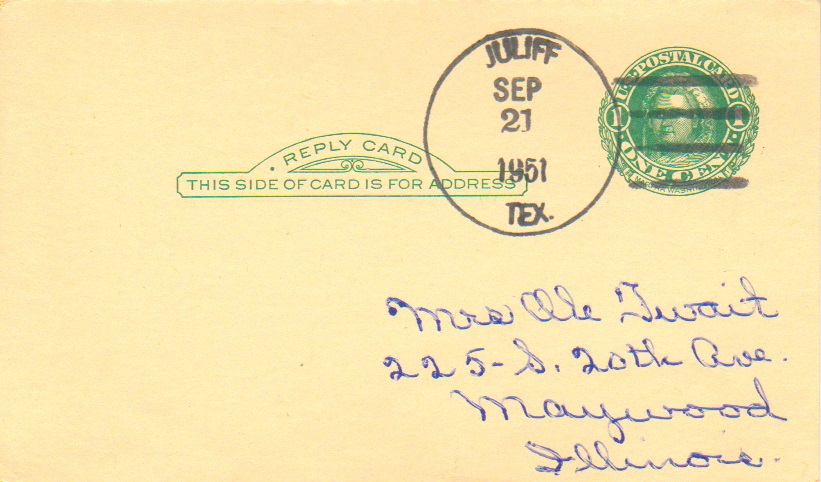 JULIFF
SEP
21
1951
TEX.
U.S. POSTAL CARD
1 1
ONE CENT
REPLY CARD
THIS SIDE OF CARD IS FOR ADDRESS
Mrs Ole Twait
225-S. 20th Ave.
Maywood
Illinois.